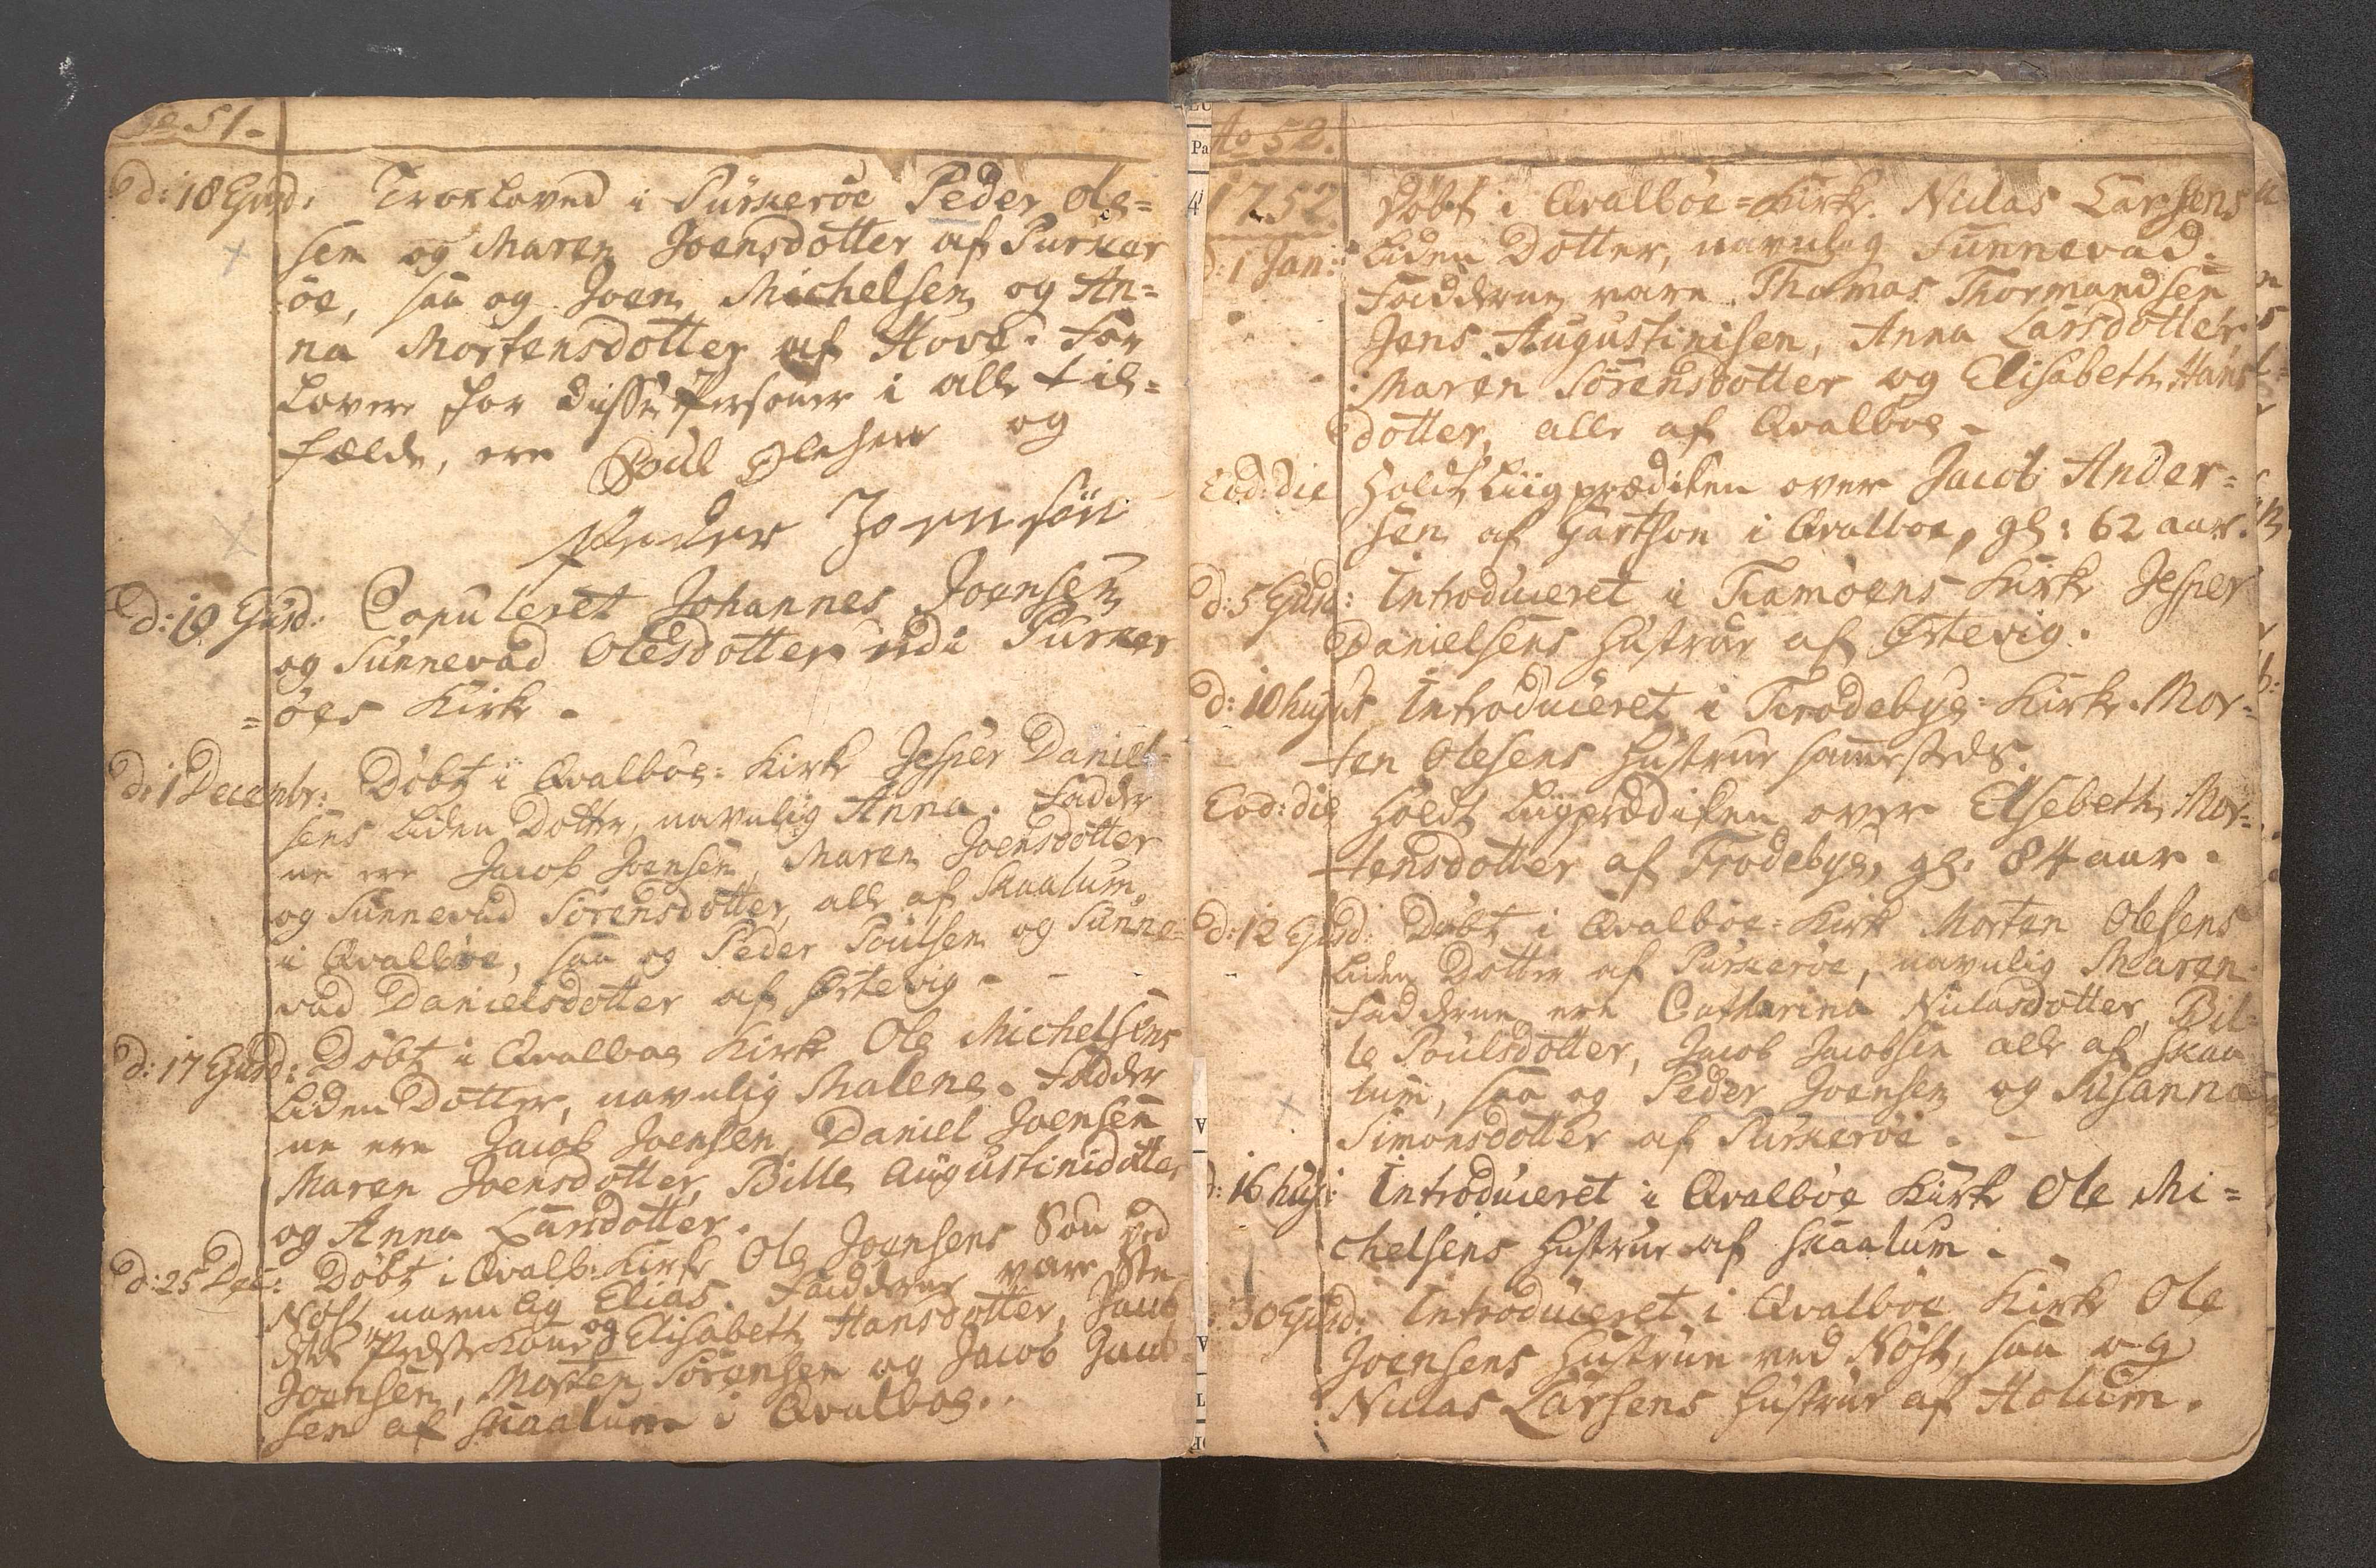 Ao 51.
D: 18 Ejusd: Troeloved i Purkerøe Peder Ole=
sen og Maren Joensdotter af Purker
øe, saa og Joen Michelsen og An=
na Mortensdotter af Hove. For
Lovere for disse Personer i alle til=
fælde, ere Poul Olesen og
Peder Joensøn
D: 19 Ejusd: Copuleret Johannes Joensen
og Sunnevad Olesdotter udi Purker
=øes Kirke.
D: 1 Decembr: Døbt i Qvalbøe=Kirke Jesper Daniel=
sens liden Dotter, navnlig Anna. Fadder
ne ere Jacob Joensen, Maren Joensdotter
og Sunnevad Sørensdotter, alle af Skaalum
i Qvalbøe, saa og Peder Poulsen og Sunne=
vad Danielsdotter af Ørtevig.
D: 17 Ejusd: Døbt i Qvalboe Kirke Ole Michelsens
liden Dotter, navnlig Malene. Fadder
ne ere Jacob Joensen, Daniel Joensen
Maren Joensdotter, Bille Augustinidotter
og Anna Larsdotter.
D: 25 Dec: Døbt i Qvalb: Kirke Ole Joensens Søn ved
Nøst, navnlig Elias. Fadderne vare Ste
dets Præstekone og Elisabeth Hansdotter, Jacob
Joensen, Morten Sørensen og Jacob Jacob=
sen af Skaalum i Qvalboe.
Ao 52.
1752. Døbt i Qvalbøe=Kirke Niclas Larsens
D: 1 Jan: liden Dotter, navnlig Sunnevad.
Fadderne vare Thomas Thormandsen
Jens Augustinisen, Anna Larsdotter,
Maren Sørensdotter og Elisabeth Hans
dotter, alle af Qvalboe.
Eod: die Holdt Liigprædiken over Jacob Ander=
sen af i Qvalboe, gl: 62 aar.
D: 5 Ejusd: Introduceret i Framøens Kirke Jesper
Danielsens Hustrue af Ørtevig.
D: 10 hujus Introduceret i Frodebye=Kirke Mor=
ten Olesens Hustrue sammesteds.
Eod: die Holdt Liigprædiken over Elsebeth Mor=
tensdotter af Frodebye, gl: 84 aar.
D: 12 Ejusd: Døbt i Qvalbøe=Kirke Morten Olesens
liden Dotter af Purkerøe, navnlig Maren.
Fadderne ere Catharina Niclasdotter, Bil=
le Poulsdotter, Jacob Jacobsen alle af Skaa
lum, saa og Peder Joensen og Susanna
Simonsdotter af Purkerøe.
D: 16 huj: Introduceret i Qvalbøe Kirke Ole Mi=
chelsens Hustrue af Skaalum.
30 Ejusd: Introduceret i Qvalbøe Kirke Ole
Joensens Hustrue ved Nøst, saa og
Niclas Larsens Hustrue af Holum.